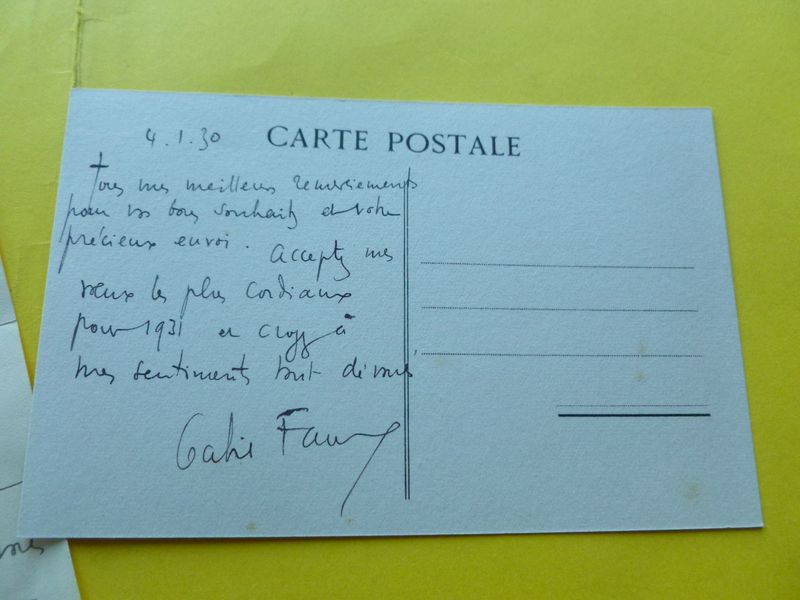 4.1.30
CARTE POSTALE
Tous mes meilleurs remerciements
pour vos bons souhaits et votre
précieux envoi.
Acceptez mes
vœux les plus cordiaux
pour 1931 et croyez à
mes sentiments tout dévoués